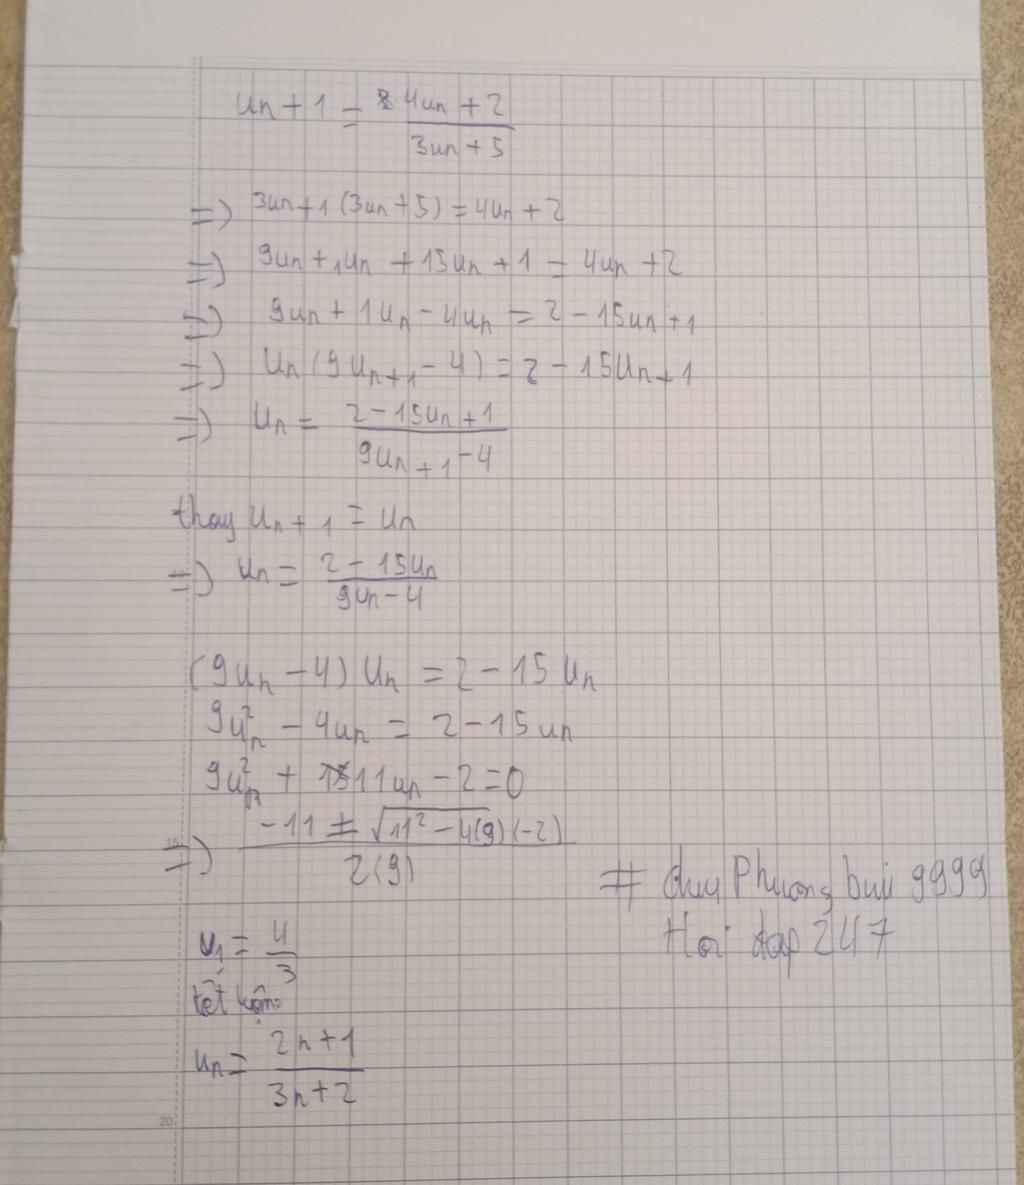 un + 1 = 4un + 2
3un + 5
=> 3un + 1 (3un + 5) = 4un + 2
=> 9un + 1un + 15un + 1 = 4un + 2
=> 9un + 1un - 4un = 2 - 15un + 1
=> un (9un+1 - 4) = 2 - 15un + 1
=> un = 2 - 15un + 1
9un + 1 - 4
thay un + 1 = un
=> un = 2 - 15un
9un - 4
(9un - 4) un = 2 - 15 un
9un² - 4un = 2 - 15 un
9un² + 11un - 2 = 0
=> -11 ± √11² - 4(9)(-2)
2(9)
# duy Phuong bui 9999
Hoi dap 247
u1 = 4
3
kết luận
un = 2n + 1
3n + 2
15
20